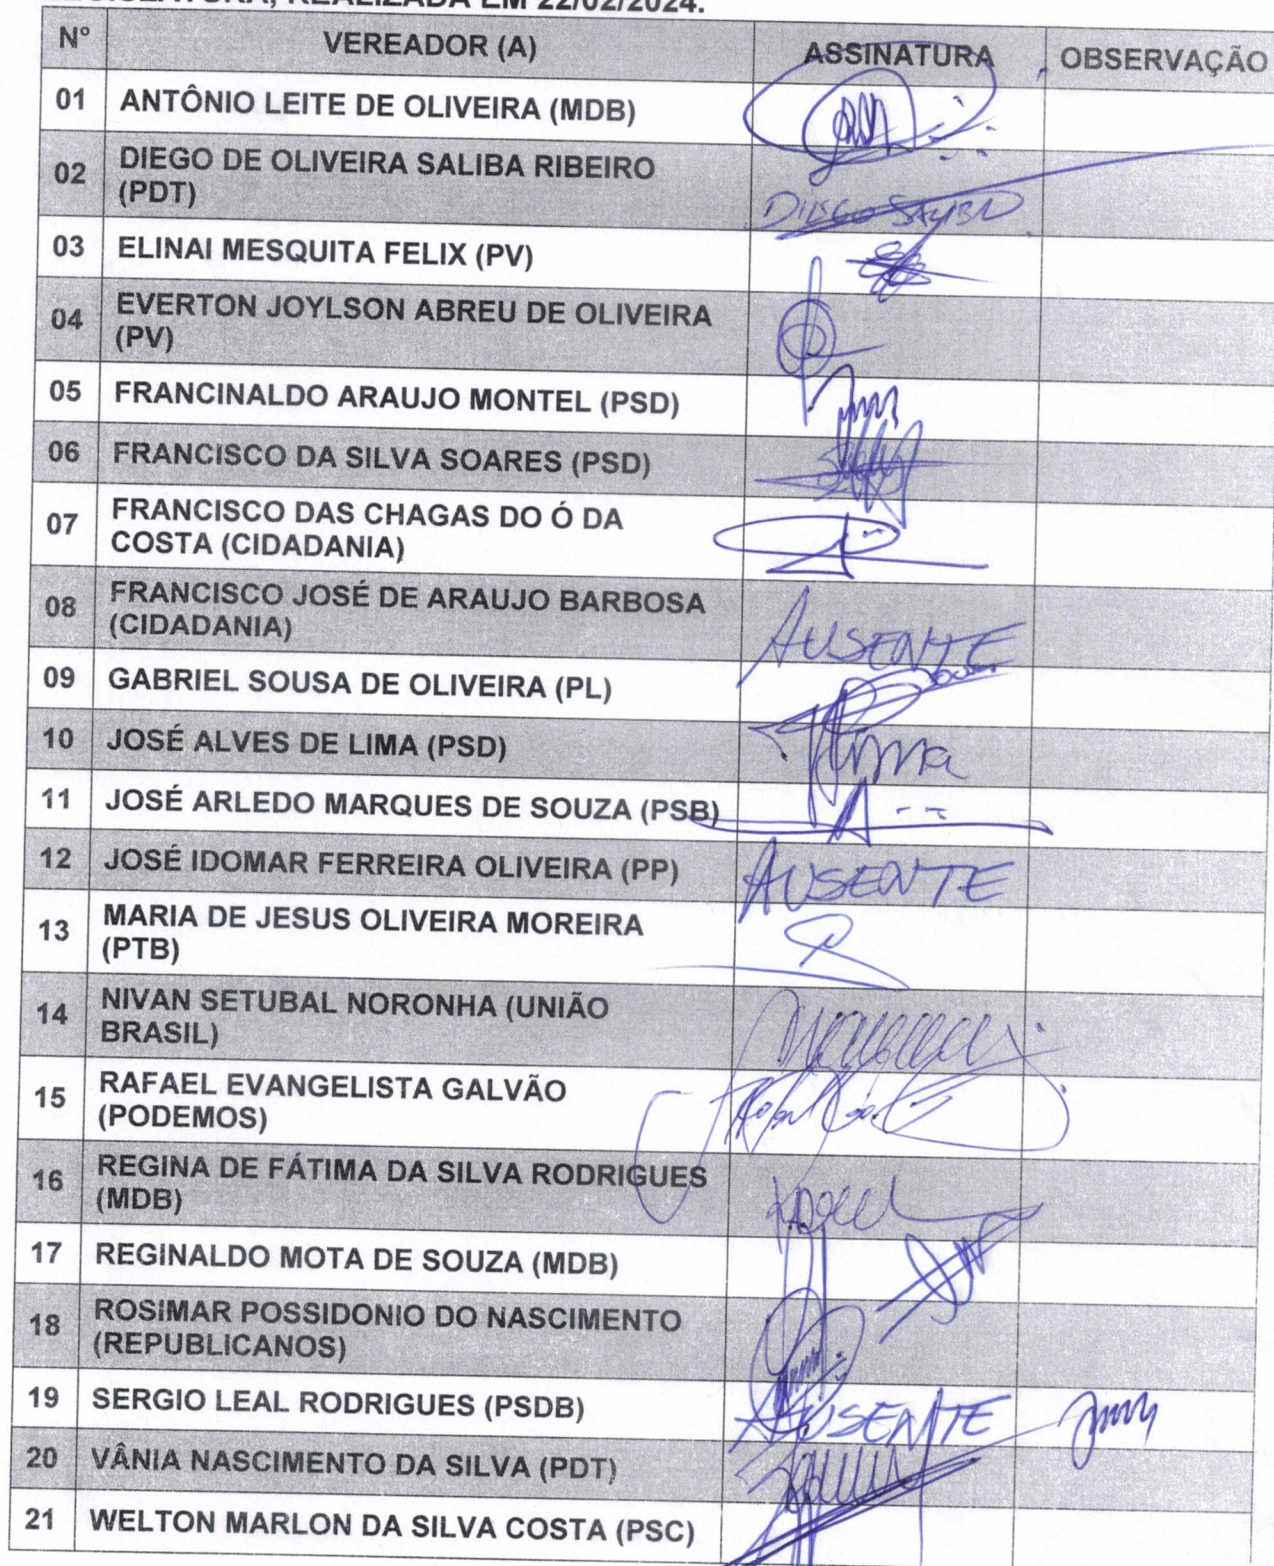 REALIZADA EM 22/02/2024.
N° VEREADOR (A) ASSINATURA OBSERVAÇÃO
01 ANTÔNIO LEITE DE OLIVEIRA (MDB)
02 DIEGO DE OLIVEIRA SALIBA RIBEIRO
(PDT)
03 ELINAI MESQUITA FELIX (PV)
04 EVERTON JOYLSON ABREU DE OLIVEIRA
(PV)
05 FRANCINALDO ARAUJO MONTEL (PSD)
06 FRANCISCO DA SILVA SOARES (PSD)
07 FRANCISCO DAS CHAGAS DO Ó DA
COSTA (CIDADANIA)
08 FRANCISCO JOSÉ DE ARAUJO BARBOSA
(CIDADANIA) AUSENTE
09 GABRIEL SOUSA DE OLIVEIRA (PL)
10 JOSÉ ALVES DE LIMA (PSD)
11 JOSÉ ARLEDO MARQUES DE SOUZA (PSB)
12 JOSÉ IDOMAR FERREIRA OLIVEIRA (PP) AUSENTE
13 MARIA DE JESUS OLIVEIRA MOREIRA
(PTB)
14 NIVAN SETUBAL NORONHA (UNIÃO
BRASIL)
15 RAFAEL EVANGELISTA GALVÃO
(PODEMOS)
16 REGINA DE FÁTIMA DA SILVA RODRIGUES
(MDB)
17 REGINALDO MOTA DE SOUZA (MDB)
18 ROSIMAR POSSIDONIO DO NASCIMENTO
(REPUBLICANOS)
19 SERGIO LEAL RODRIGUES (PSDB) AUSENTE
20 VÂNIA NASCIMENTO DA SILVA (PDT)
21 WELTON MARLON DA SILVA COSTA (PSC)